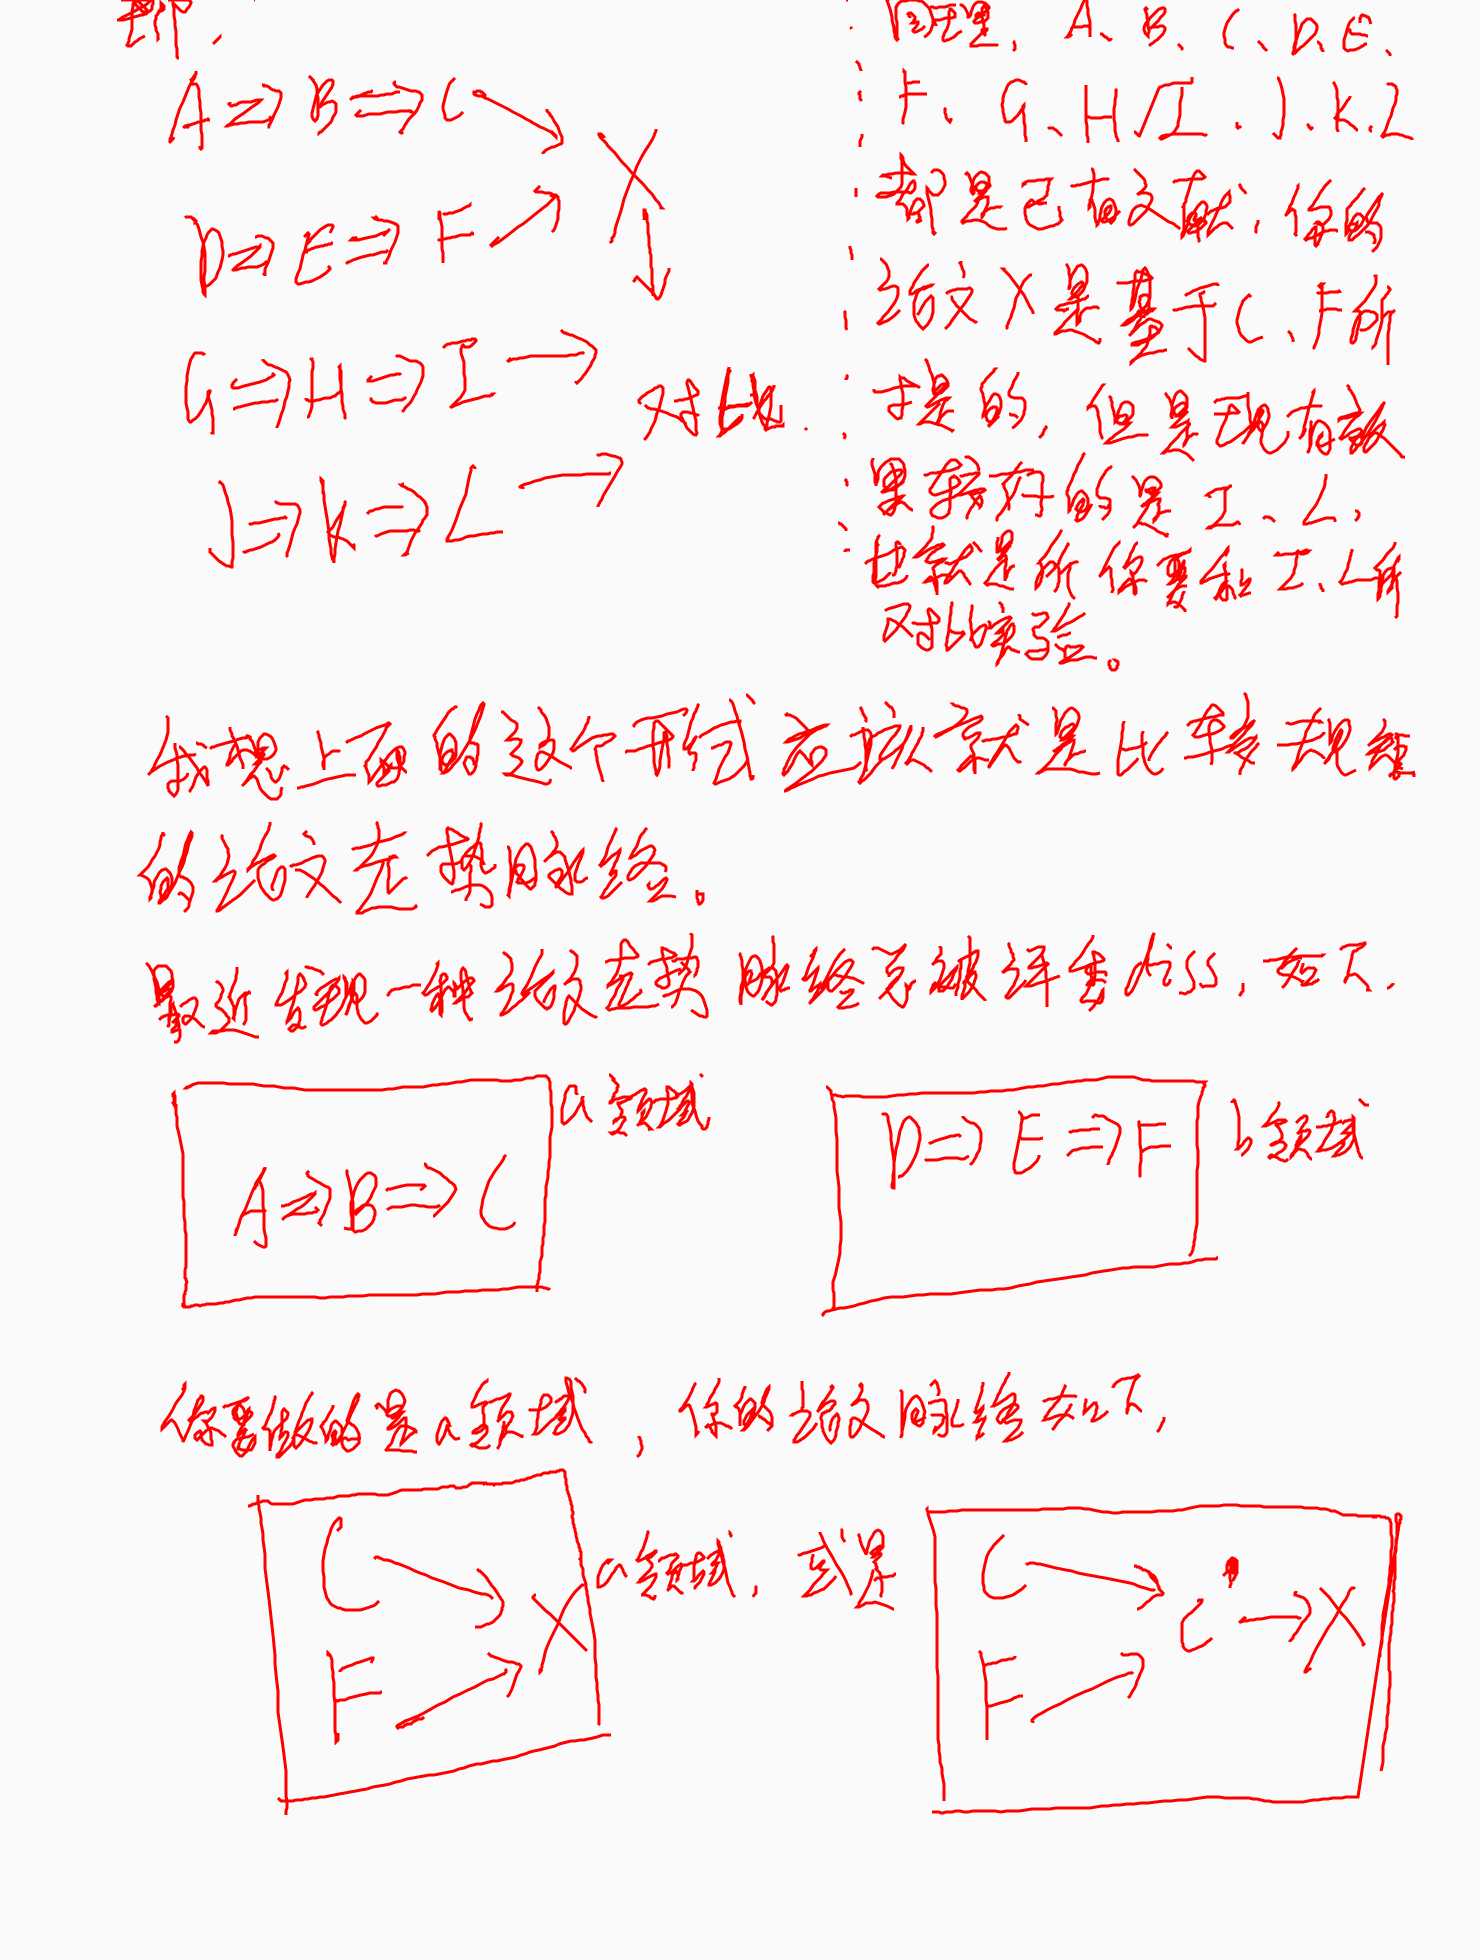 即、
A⇒B⇒C→X
D⇒E⇒F→
G⇒H⇒I→
对比.
J⇒K⇒L→
同理、A、B、C、D、E、
F、G、H、I、J、K、L
都是已有文献,你的
论文X是基于C、F所
才是的,但是现有效
果较好的是I、L,
也就是所你要和I、L所
对比实验。
我想上面的这个形式应该就是比较规矩
的论文走势脉络。
最近发现一种论文走势脉络总被评委diss,如下,
a领域
A⇒B⇒C
b领域
D⇒E⇒F
你要做的是a领域,你的论文脉络如下,
C→X
F→
a领域,或是
C→C'→X
F→